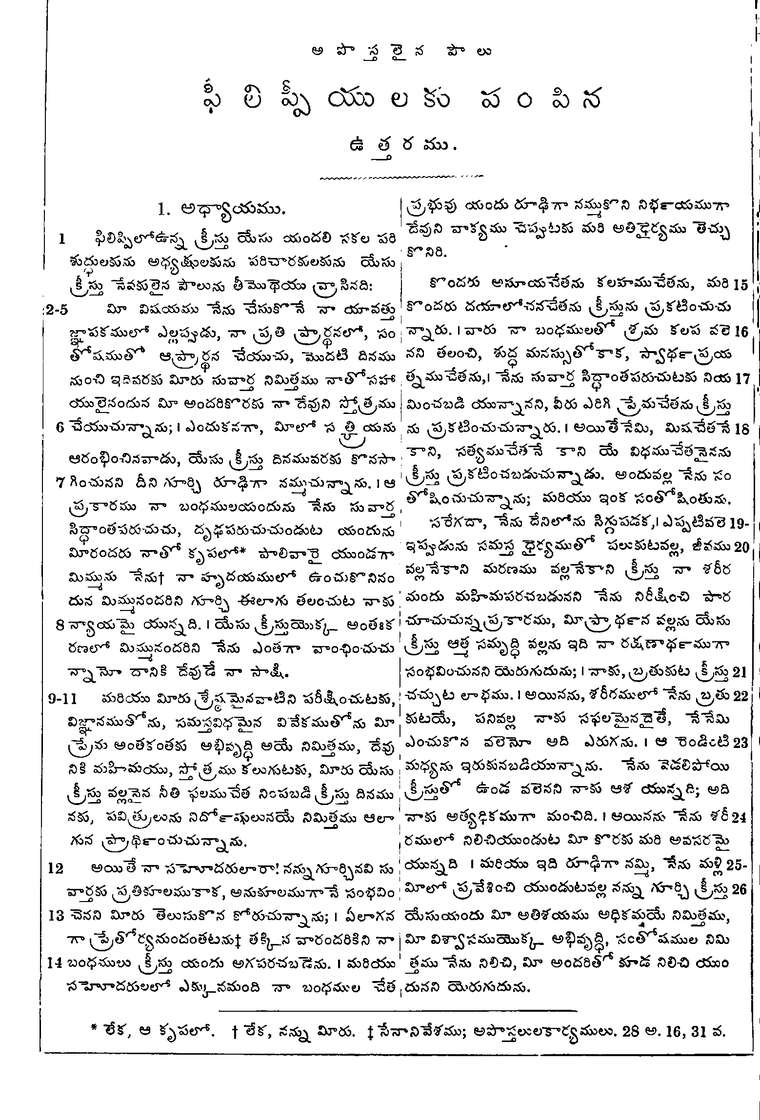 అ పొ స్త లై న పౌ లు
ఫీ లి ప్పీ యు ల కు పం పి న
ఉ త్త ర ము.
1. అధ్యాయము.
1 ఫిలిప్పిలోఉన్న క్రీస్తు యేసు యందలి సకల పరి
శుద్ధులకును అధ్యక్షులకును పరిచారకులకును యేసు
క్రీస్తు సేవకులైన పౌలును తీమొథెయు వ్రాసినది:
2-5 మీ విషయము నేను చేసుకొనే నా యావత్తు
జ్ఞాపకములో ఎల్లప్పుడు, నా ప్రతి ప్రార్థనలో, సం
తోషముతో ఆప్రార్థన చేయుచు, మొదటి దినము
నుంచి ఇదివరకు మీరు సువార్త నిమిత్తము నాతోసహా
యులైనందున మీ అందరికొరకు నా దేవుని స్తోత్రము
6 చేయుచున్నాను; । ఎందుకనగా, మీలో స త్క్రియను
ఆరంభించినవాడు, యేసు క్రీస్తు దినమువరకు కొనసా
7 గించునని దీని గూర్చి రూఢిగా నమ్ముచున్నాను. । ఆ
ప్రకారము నా బంధములయందును నేను సువార్త
సిద్ధాంతపరుచుచు, దృఢపరుచుచుండుట యందును
మీరందరు నాతో కృపలో* పాలివారై యుండగా
మిమ్మును నేను† నా హృదయములో ఉంచుకొనినం
దున మిమ్మునందరిని గూర్చి ఈలాగు తలంచుట నాకు
8 న్యాయమై యున్నది. । యేసు క్రీస్తుయొక్క అంతఃక
రణలో మిమ్మునందరిని నేను ఎంతగా వాంఛించుచు
న్నామో దానికి దేవుడే నా సాక్షి.
9-11 మరియు మీరు శ్రేష్ఠమైనవాటిని పరీక్షించుటకు,
విజ్ఞానముతోను, సమస్తవిధమైన వివేకముతోను మీ
ప్రేమ అంతకంతకు అభివృద్ధి అయే నిమిత్తము, దేవు
నికి మహిమయు, స్తోత్రము కలుగుటకు, మీరు యేసు
క్రీస్తు వల్లనైన నీతి ఫలముచేత నింపబడి క్రీస్తు దినము
నకు, పవిత్రులును నిర్దోషులునయే నిమిత్తము ఆలా
గున ప్రార్థించుచున్నాను.
12 అయితే నా సహోదరులారా! నన్నుగూర్చినవి సు
వార్తకు ప్రతికూలముకాక, అనుకూలముగానే సంభవిం
13 చెనని మీరు తెలుసుకొన కోరుచున్నాను; । ఏలాగన
గా ప్రేతోర్యనుందంతటను‡ తక్కిన వారందరికిని నా
14 బంధములు క్రీస్తు యందు అగపరచబడెను. । మరియు
సహోదరులలో ఎక్కునమంది నా బంధముల చేత
ప్రభువు యందు రూఢిగా నమ్ముకొని నిర్భయముగా
దేవుని వాక్యము చెప్పుటకు మరి అతిధైర్యము తెచ్చు
కొనిరి.
కొందరు అసూయచేతను కలహముచేతను, మరి 15
కొందరు దయాలోచనచేతను క్రీస్తును ప్రకటించుచు
న్నారు. । వారు నా బంధములతో శ్రమ కలప వలె 16
నని తలంచి, శుద్ధ మనస్సుతోకాక, స్వార్థప్రయ
త్నముచేతను, । నేను సువార్త సిద్ధాంతపరుచుటకు నియ 17
మించబడి యున్నానని, వీరు ఎరిగి ప్రేమచేతను క్రీస్తు
ను ప్రకటించుచున్నారు. । అయితేనేమి, మిషచేతనే 18
కాని, సత్యముచేతనే కాని యే విధముచేతనైనను
క్రీస్తు ప్రకటించబడుచున్నాడు. అందువల్ల నేను సం
తోషించుచున్నాను; మరియు ఇంక సంతోషింతును.
సరేగదా, నేను దేనిలోను సిగ్గుపడక, । ఎప్పటివలె 19-
ఇప్పుడును సమస్త ధైర్యముతో పలుకుటవల్ల, జీవము 20
వల్లనేకాని మరణము వల్లనేకాని క్రీస్తు నా శరీర
మందు మహిమపరచబడునని నేను నిరీక్షించి పార
చూచుచున్న ప్రకారము, మీప్రార్థన వల్లను యేసు
క్రీస్తు ఆత్మ సమృద్ధి వల్లను ఇది నా రక్షణార్థముగా
సంభవించునని యెరుగుదును; । నాకు, బ్రతుకుట క్రీస్తు 21
చచ్చుట లాభము. । అయినను, శరీరములో నేను బ్రతు 22
కుటయే, పనివల్ల నాకు సఫలమైనదైతే, నేనేమి
ఎంచుకొన వలెనో అది ఎరుగను. । ఆ రెండింటి 23
మధ్యను ఇరుకునబడియున్నాను. నేను వెడలిపోయి
క్రీస్తుతో ఉండ వలెనని నాకు ఆశ యున్నది; అది
నాకు అత్యధికముగా మంచిది. । అయినను నేను శరీ 24
రములో నిలిచియుండుట మీ కొరకు మరి అవసరమై
యున్నది । మరియు ఇది రూఢిగా నమ్మి, నేను మళ్లి 25-
మీలో ప్రవేశించి యుండుటవల్ల నన్ను గూర్చి క్రీస్తు 26
యేసుయందు మీ అతిశయము అధికమ్మయే నిమిత్తము,
మీ విశ్వాసముయొక్క అభివృద్ధి, సంతోషముల నిమి
త్తము నేను నిలిచి, మీ అందరితో కూడ నిలిచి యుం
దునని యెరుగుదును.
* లేక, ఆ కృపలో. † లేక, నన్ను మీరు. ‡ సేనానివేశము; అపొస్తలులకార్యములు. 28 అ. 16, 31 వ.